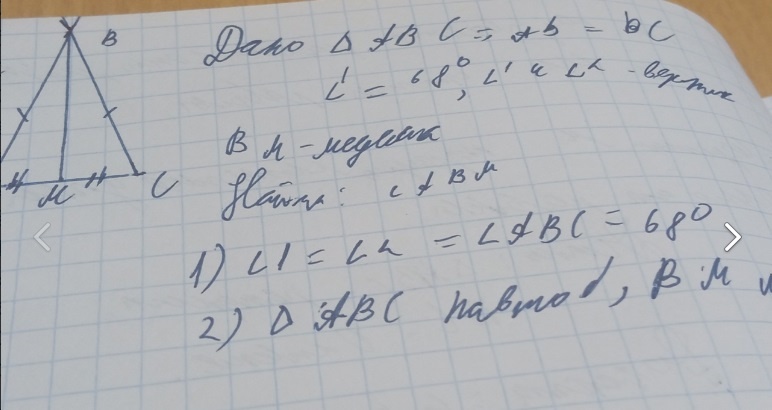 B
M
C
Дано Δ ABC = AB = BC
∠1 = 68°, ∠1 и ∠2 - вертик
BM - медиана
Найти: ∠ABM
1) ∠1 = ∠2 = ∠ABC = 68°
2) Δ ABC , BM